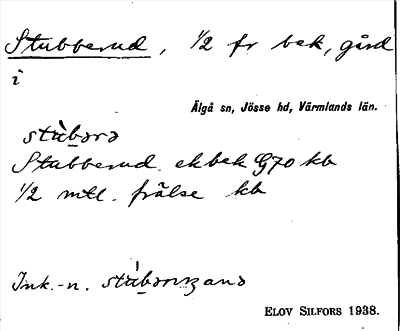 Stubberud, 1/2 fr bek, gård
i
Älgå sn, Jösse hd, Värmlands län.
stùbərə
Stubberud. ekbek G70 kb
1/2 mtl. frälse kb
Ink.-n.
ELOV SILFORS 1938.